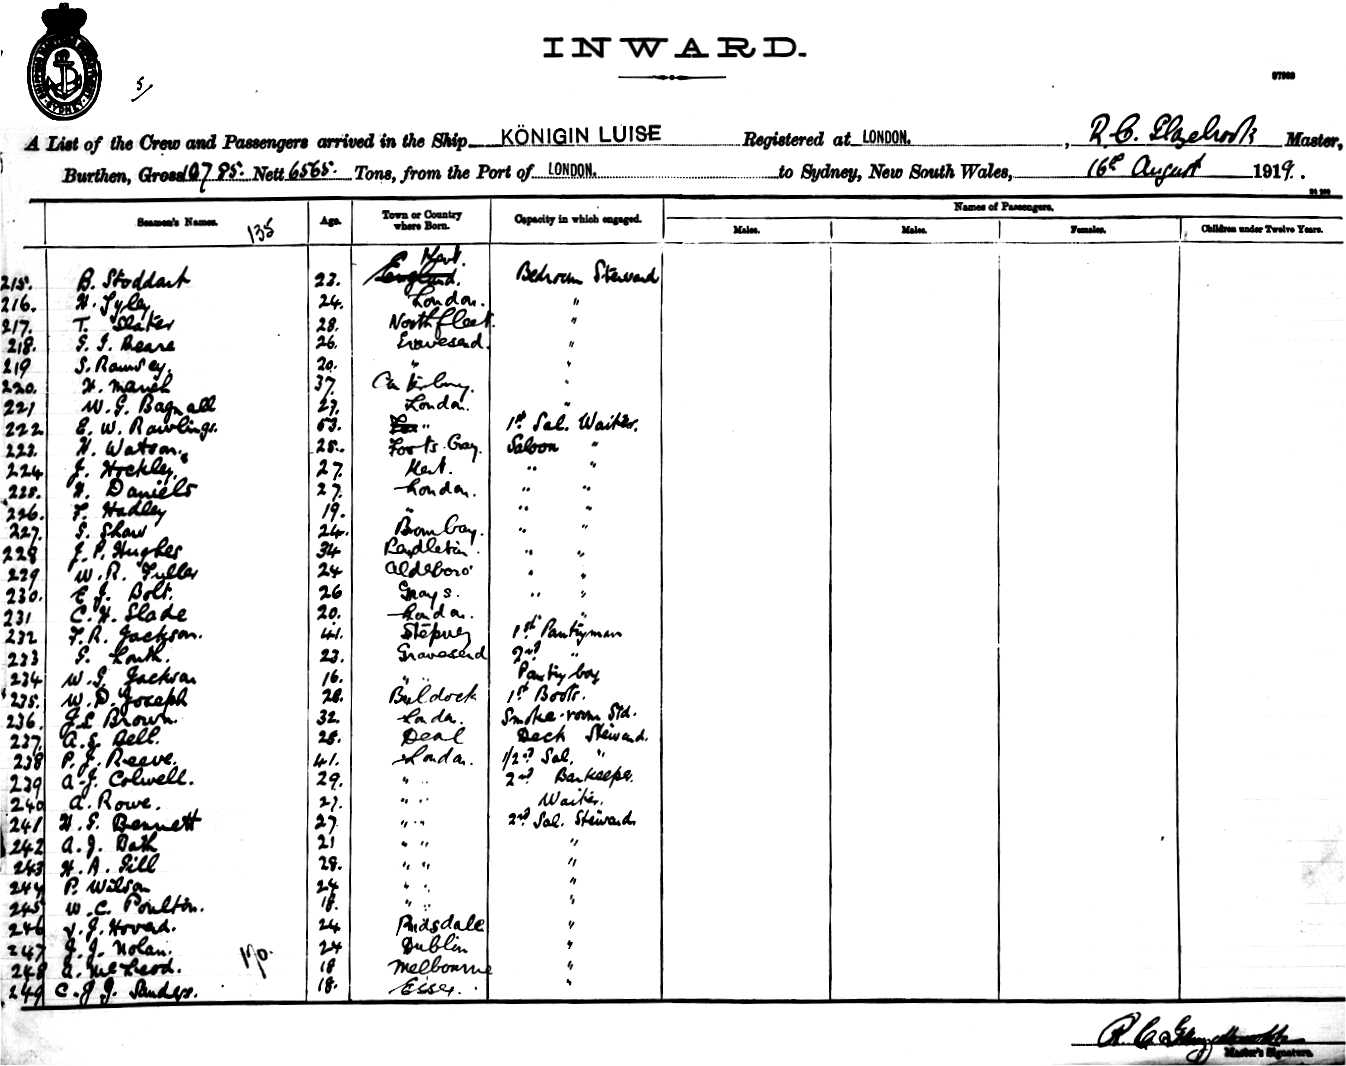 INWARD.
5/
A List of the Crew and Passengers arrived in the Ship KÖNIGIN LUISE Registered at LONDON. , R. C. Master,
Burthen, Gross 10785. Nett 6565. Tons, from the Port of LONDON. to Sydney, New South Wales, 16th August 1919.
Names of Passengers.
Seamen's Names. 135 Age. Town or Country where Born. Capacity in which engaged. Males. Males. Females. Children under Twelve Years.
Kent.
215. B. Stoddart 23. England. Bedroom Steward
216. H. Tyley 24. London. "
217. T. Slater 28. Northfleet. "
218. 26. Gravesend. "
219 S. Ramsey. 20. " "
220. H. Marsh 37. "
221 W. G. Bagnall 27. London. "
222 E. W. Rawlings. 53. " 1st Sal. Waiter.
223. H. Watson. 25. Foots Cray. Saloon "
224 J. Hockley. 27. Kent. " "
225. H. Daniels 27. London. " "
226. F. Hadley 19. " " "
227. S. Shaw 24. Bombay. " "
228 J. P. Hughes 34 Pendleton. " "
229 W. R. Fuller 24 Aldeboro' " "
230. E. J. Bolt. 26 Grays. " "
231 C. H. Slade 20. London. "
232 F. R. Jackson. 41. Stepney 1st Pantryman
233 G. Louth. 23. Gravesend 2nd "
234 W. G. Jackson 16. " " Pantry boy
235. W. D. Joseph 28. Buldock 1st Boots.
236. Brown. 32. London. Smoke-room Std.
237. A. G. Bell. 25. Deal Deck Steward.
238 P. J. Reeve. 41. London. 1/2nd Sal. "
239 A. J. Colwell. 29. " " 2nd Barkeeper.
240 A. Rowe. 27. " " Waiter.
241 H. G. Bennett 27 " " 2nd Sal. Steward
242 A. J. Bath 21 " " "
243 H. A. Gill 28. " " "
244 P. Wilson 24 " " "
245 W. C. Poulton. 18. " " "
246 24 "
247 J. J. Nolan. 24 Dublin "
170.
248 A. McLeod. 18 Melbourne "
249 C. J. J. Sanders. 18. Essex. "
R. C.
Master's Signature.